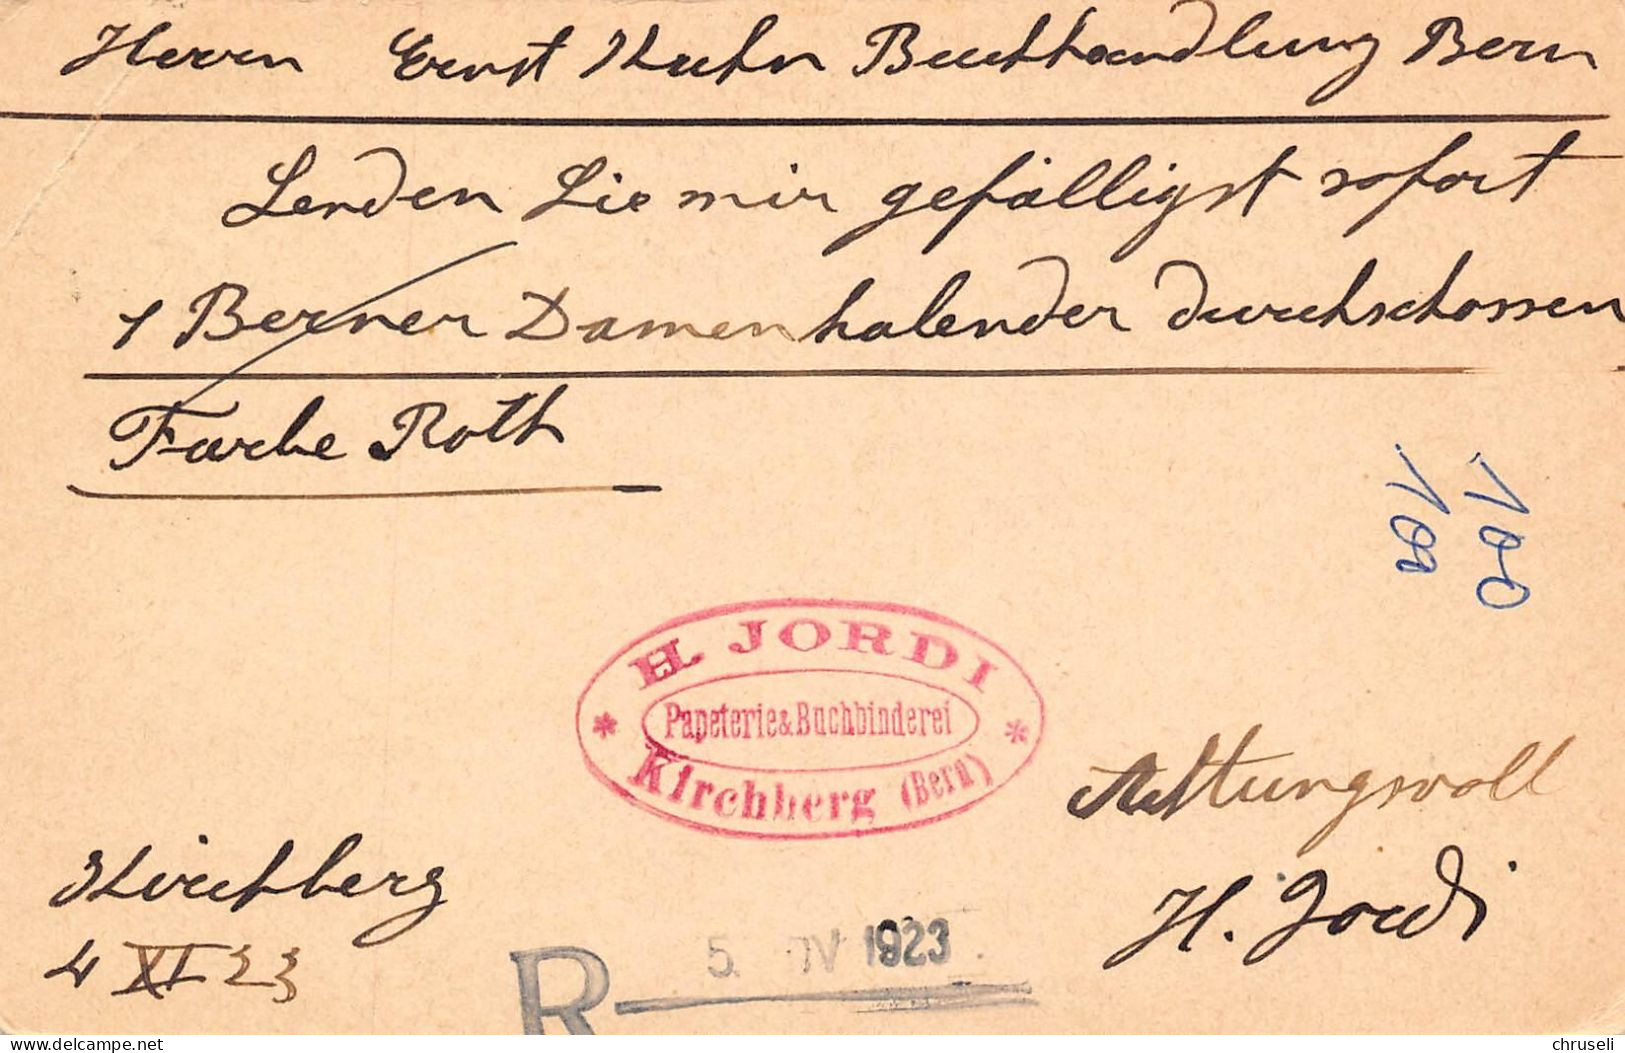 Herrn Ernst Kuhn Buchhandlung Bern
Senden Sie mir gefälligst sofort
1 Berner Damenkalender durchschossen
Farbe Roth
100
100
H. JORDI
* Papeterie & Buchbinderei *
Kirchberg (Bern)
Achtungsvoll
H. Jordi
Kirchberg
4 XI 23
R 5. NOV 1923
delcampe.net
chruseli